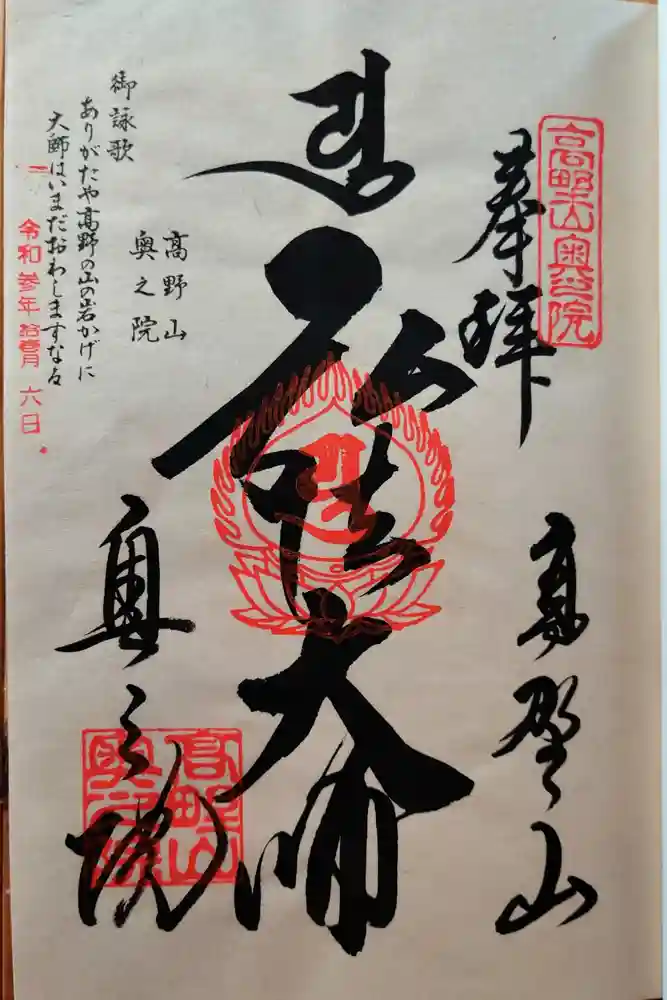 高野山奥之院
奉拝
高野山
弘法大師
高野山
奥之院
御詠歌
ありがたや高野の山の岩かげに
大師はいまだおわしますなる
令和参年拾壹月六日
奥之院
高野山
奥之院